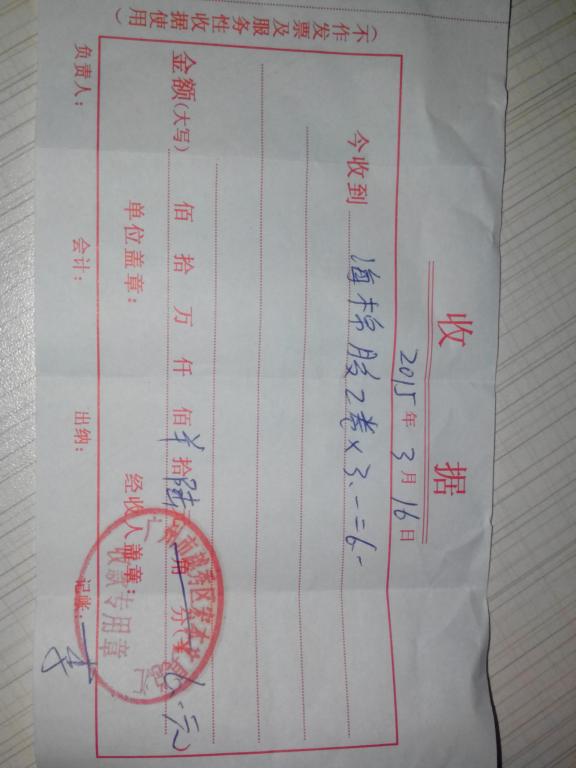 收据
2015年3月16日
今收到 海棉胶2卷×3.-=6.-
金额(大写) 佰拾万仟佰¥拾陆元 角 分(¥6.元)
单位盖章： 经收人盖章：
负责人： 会计： 出纳： 记账：
(不作发票及服务性收据使用)
收款专用章